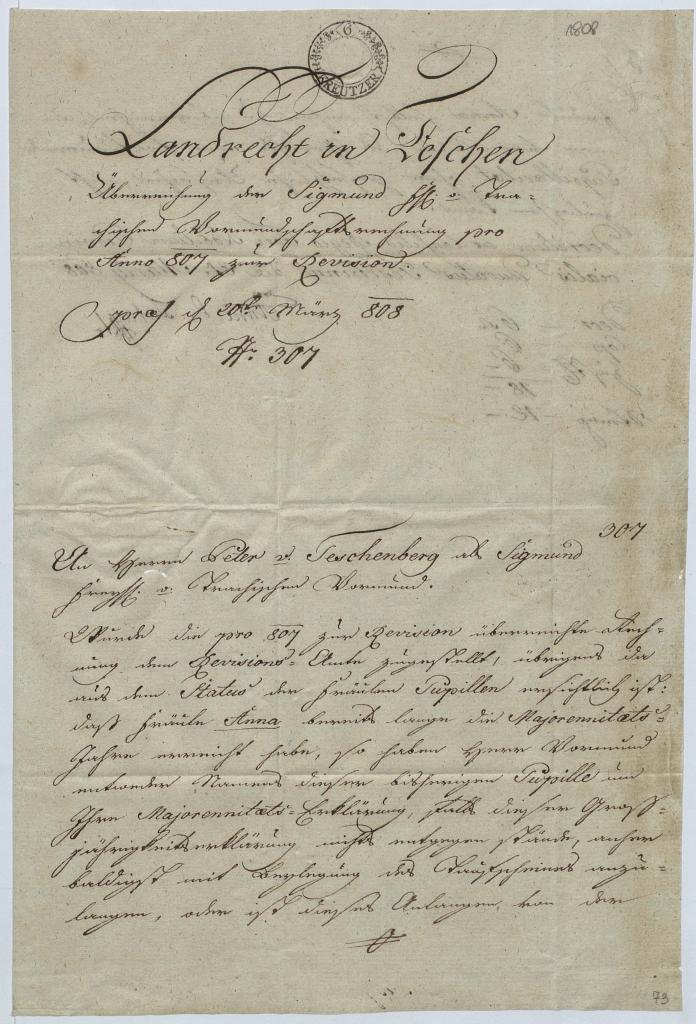 1808
6
KREUTZER
Landrecht in Teschen
Überreichung der Sigmund Fhl. v. Tra-
chischen Vormundschaftsrechnung pro
Anno 807 zur Revision.
præs. d. 20ten März 808
Nr. 307
307
An Herrn Peter v. Teschenberg als Sigmund
Freyhl. v. Trachischen Vormund.
Wurde die pro 807 zur Revision überreichte Rech-
nung dem Revisions-Amte zugestellt, übrigens da
aus dem Status der Fräulen Pupillen ersichtlich ist:
daß Fräule Anna bereits lange die Majorennitæts-
Jahre erreicht habe, so haben Herr Vormund
entweder Namens dieser bisherigen Pupille um
Ihre Majorennitæts-Erklärung, falls dieser Gross-
jährigkeitserklärung nichts entgegen stände, anher
baldigst mit Beylegung des Taufscheines anzu-
langen, oder ist dieses Anlangen von der
73